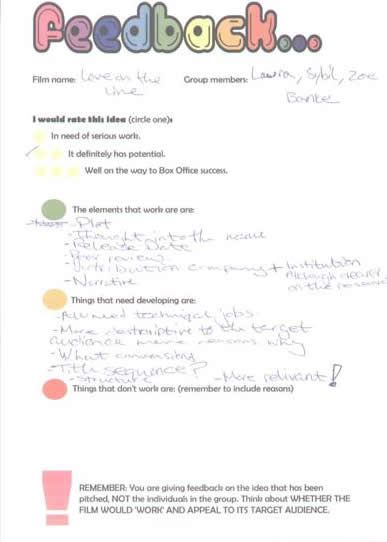 Feedback...
Film name: Love on the Line
Group members: Laura, Sybil, Zoe
I would rate this idea (circle one):
In need of serious work.
It definitely has potential.
Well on the way to Box Office success.
The elements that work are are:
- Plot
- Thought into the name
- Release Date
- Peer review
- Distribution company + Institution
Although clearer on the reasons
- Narrative
Things that need developing are:
- technical jobs
- More descriptive to the target
audience more reasons why
- What
- Title sequence?
- Structure - More relivant!
Things that don't work are: (remember to include reasons)
REMEMBER: You are giving feedback on the idea that has been
pitched, NOT the individuals in the group. Think about WHETHER THE
FILM WOULD 'WORK' AND APPEAL TO ITS TARGET AUDIENCE.